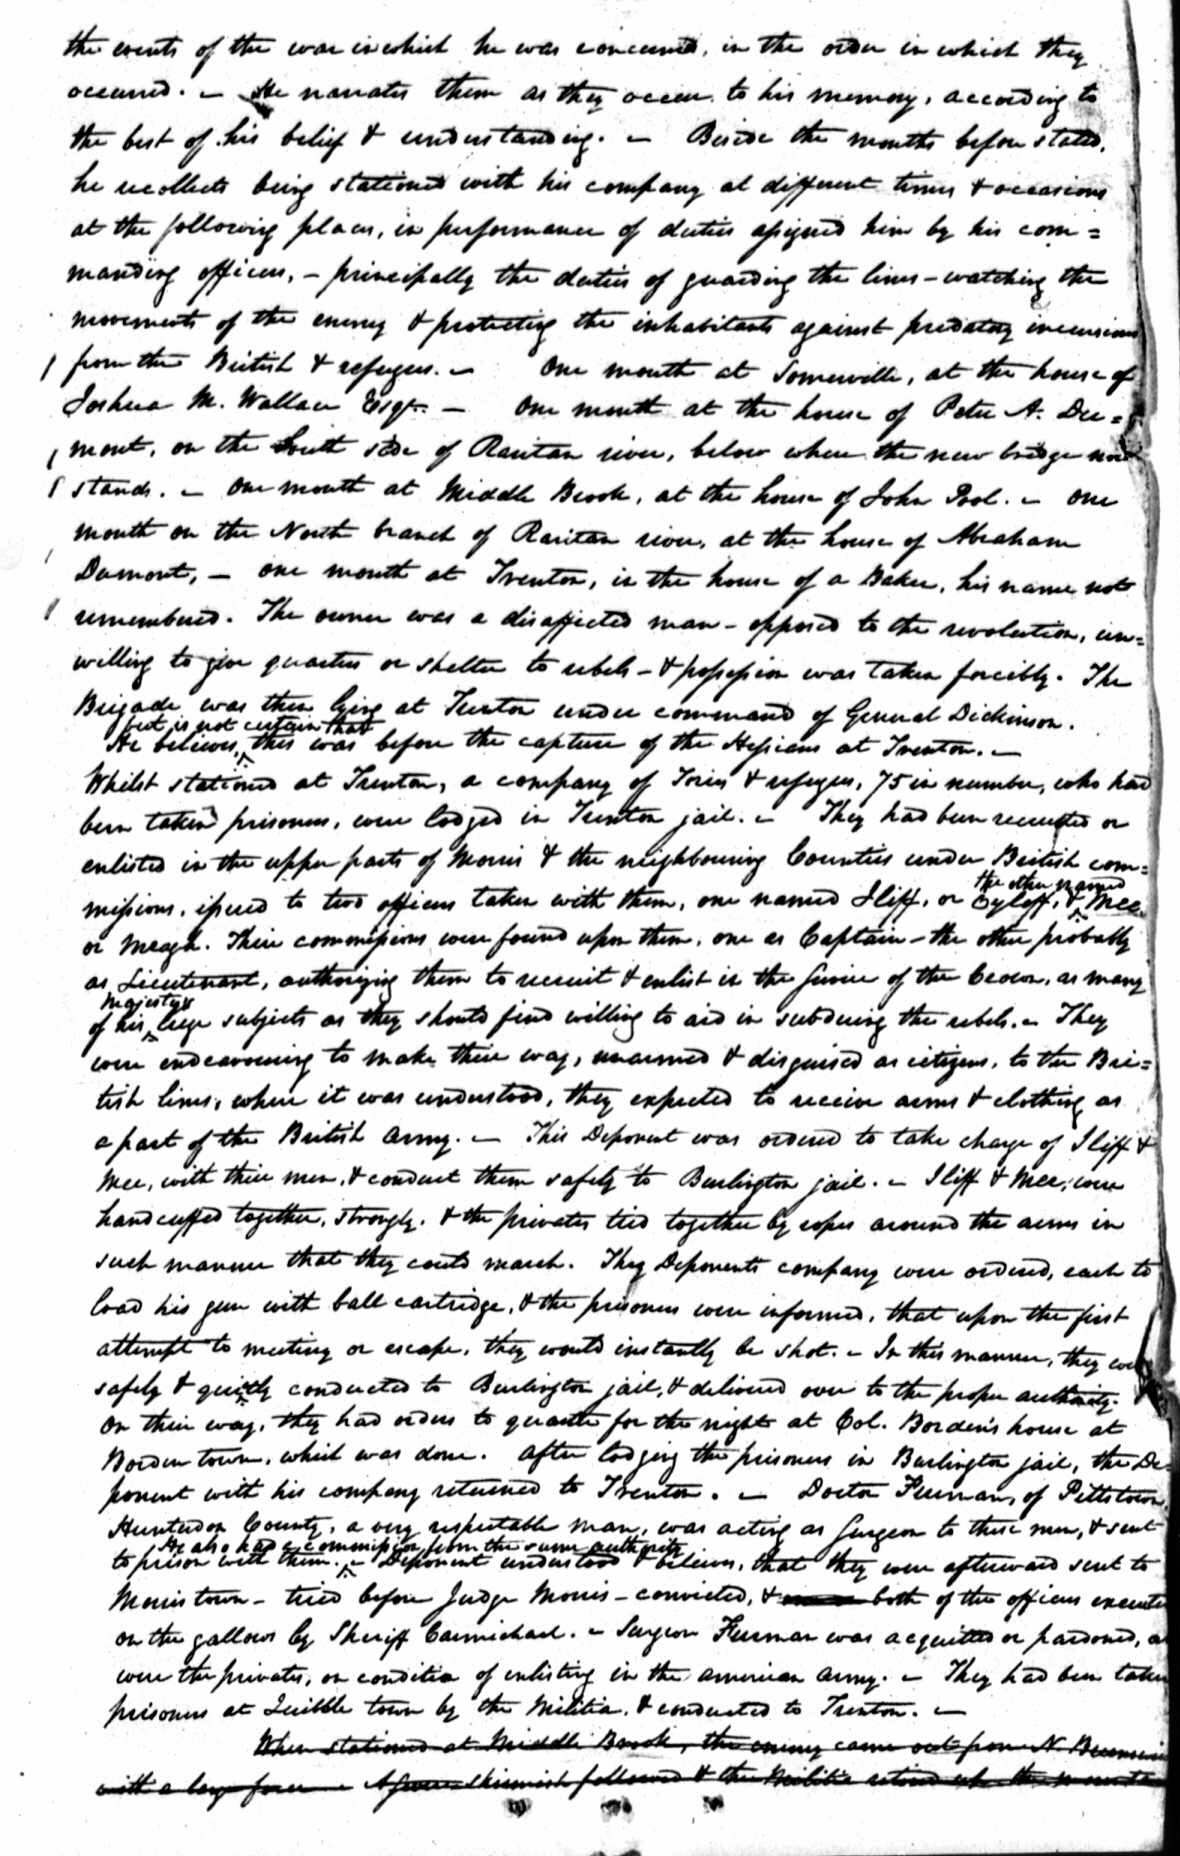 the events of the war in which he was concerned, in the order in which they
occurred. – He narrates them as they occur to his memory, according to
the best of his belief & understanding. – Beside the months before stated,
he recollects being stationed with his company at different times & occasions
at the following places, in performance of duties assigned him by his com=
manding officers, – principally the duties of guarding the lines – watching the
movements of the enemy & protecting the inhabitants against predatory incursions
from the British & refugees. – One month at Somerville, at the house of
Joshua M. Wallace Esqr. – One month at the house of Peter A. Du=
mont, on the South side of Raritan river, below where the new bridge now
stands. – One month at Middle Brook, at the house of John Pool. – One
month on the North branch of Raritan river, at the house of Abraham
Dumont, – one month at Trenton, in the house of a Baker, his name not
remembered. The owner was a disaffected man – opposed to the revolution, un=
willing to give quarters or shelter to rebels – & possession was taken forcibly. The
Brigade was then lying at Trenton under command of General Dickinson.
but is not certain that
He believes, this was before the capture of the Hessians at Trenton. –
Whilst stationed at Trenton, a company of Tories & refugees, 75 in number, who had
been taken prisoners, were lodged in Trenton jail. – They had been recruited or
enlisted in the upper parts of Morris & the neighbouring Counties under British com=
the other named
missions, issued to two officers taken with them, one named Iliff, or Eyloff, & Mee
or Meagh. Their commissions were found upon them, one as Captain – the other probably
as Lieutenant, authorizing them to recruit & enlist in the service of the Crown, as many
majestys
of his liege subjects as they should find willing to aid in subduing the rebels. – They
were endeavouring to make their way, unarmed & disguised as citizens, to the Bri=
tish lines, where it was understood, they expected to receive arms & clothing as
a part of the British army. – This Deponent was ordered to take charge of Iliff &
Mee, with their men, & conduct them safely to Burlington jail. – Iliff & Mee, were
handcuffed together, strongly, & the privates tied together by ropes around the arms in
such manner that they could march. They Deponents company were ordered, each to
load his gun with ball cartridge, & the prisoners were informed, that upon the first
attempt to meeting or escape, they would instantly be shot. – In this manner, they were
safely & quietly conducted to Burlington jail, & delivered over to the proper authority.
On their way, they had orders to quarter for the night at Col. Borden's house at
Borden town, which was done. After lodging the prisoners in Burlington jail, the De=
ponent with his company returned to Trenton. – Doctor Furman, of Pittstown,
Hunterdon County, a very respectable man, was acting as Surgeon to these men, & sent
He also had a commission from the same authority
to prison with them. – Deponent understood & believes, that they were afterward sent to
Morristown – tried before Judge Morris – convicted, & both of the officers executed
on the gallows by Sheriff Carmichael. – Surgeon Furman was acquitted or pardoned, as
were the privates, on condition of enlisting in the american army. – They had been taken
prisoners at Quibble town by the Militia, & conducted to Trenton. –
When stationed at Middle Brook, the enemy came out from N. Brunswick
with a large force – A skirmish followed & the Militia retired